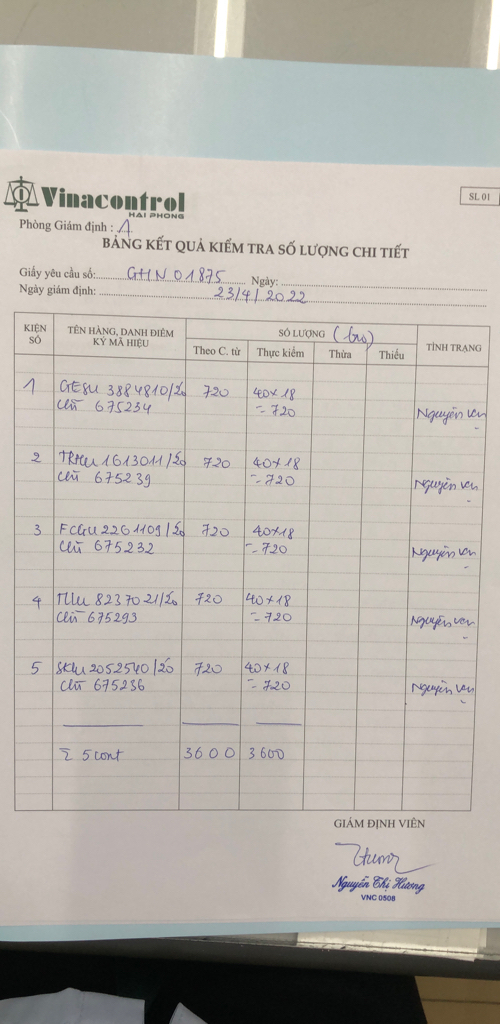 Vinacontrol
HAI PHONG
SL 01
Phòng Giám định : A
BẢNG KẾT QUẢ KIỂM TRA SỐ LƯỢNG CHI TIẾT
Giấy yêu cầu số: GHN 01875 Ngày:
Ngày giám định: 23/4/2022
KIỆN SỐ TÊN HÀNG, DANH ĐIỂM KÝ MÃ HIỆU SỐ LƯỢNG (bao) TÌNH TRẠNG
Theo C. từ Thực kiểm Thừa Thiếu
1 GESU 3884810/20 720 40x18
675234 = 720 Nguyên vẹn
2 TRHU 1613011/20 720 40x18
675239 = 720 Nguyên vẹn
3 FCGU 2261109/20 720 40x18
675232 = 720 Nguyên vẹn
4 TLLU 8237021/20 720 40x18
675293 = 720 Nguyên vẹn
5 SKLU 2052540/20 720 40x18
675236 = 720 Nguyên vẹn
Σ 5 cont 3600 3600
GIÁM ĐỊNH VIÊN
Nguyễn Thị Hương
VNC 0508